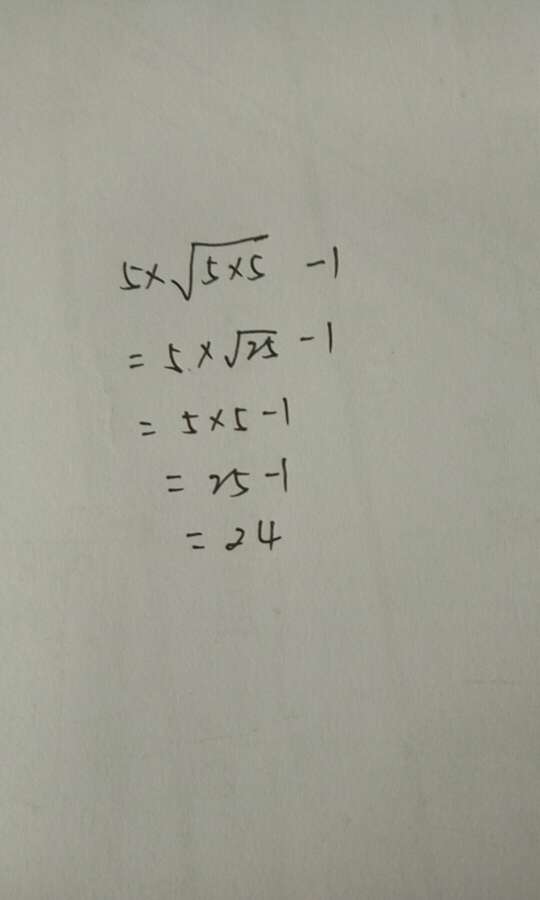 5×√(5×5) -1
= 5×√25 -1
= 5×5-1
= 25-1
= 24